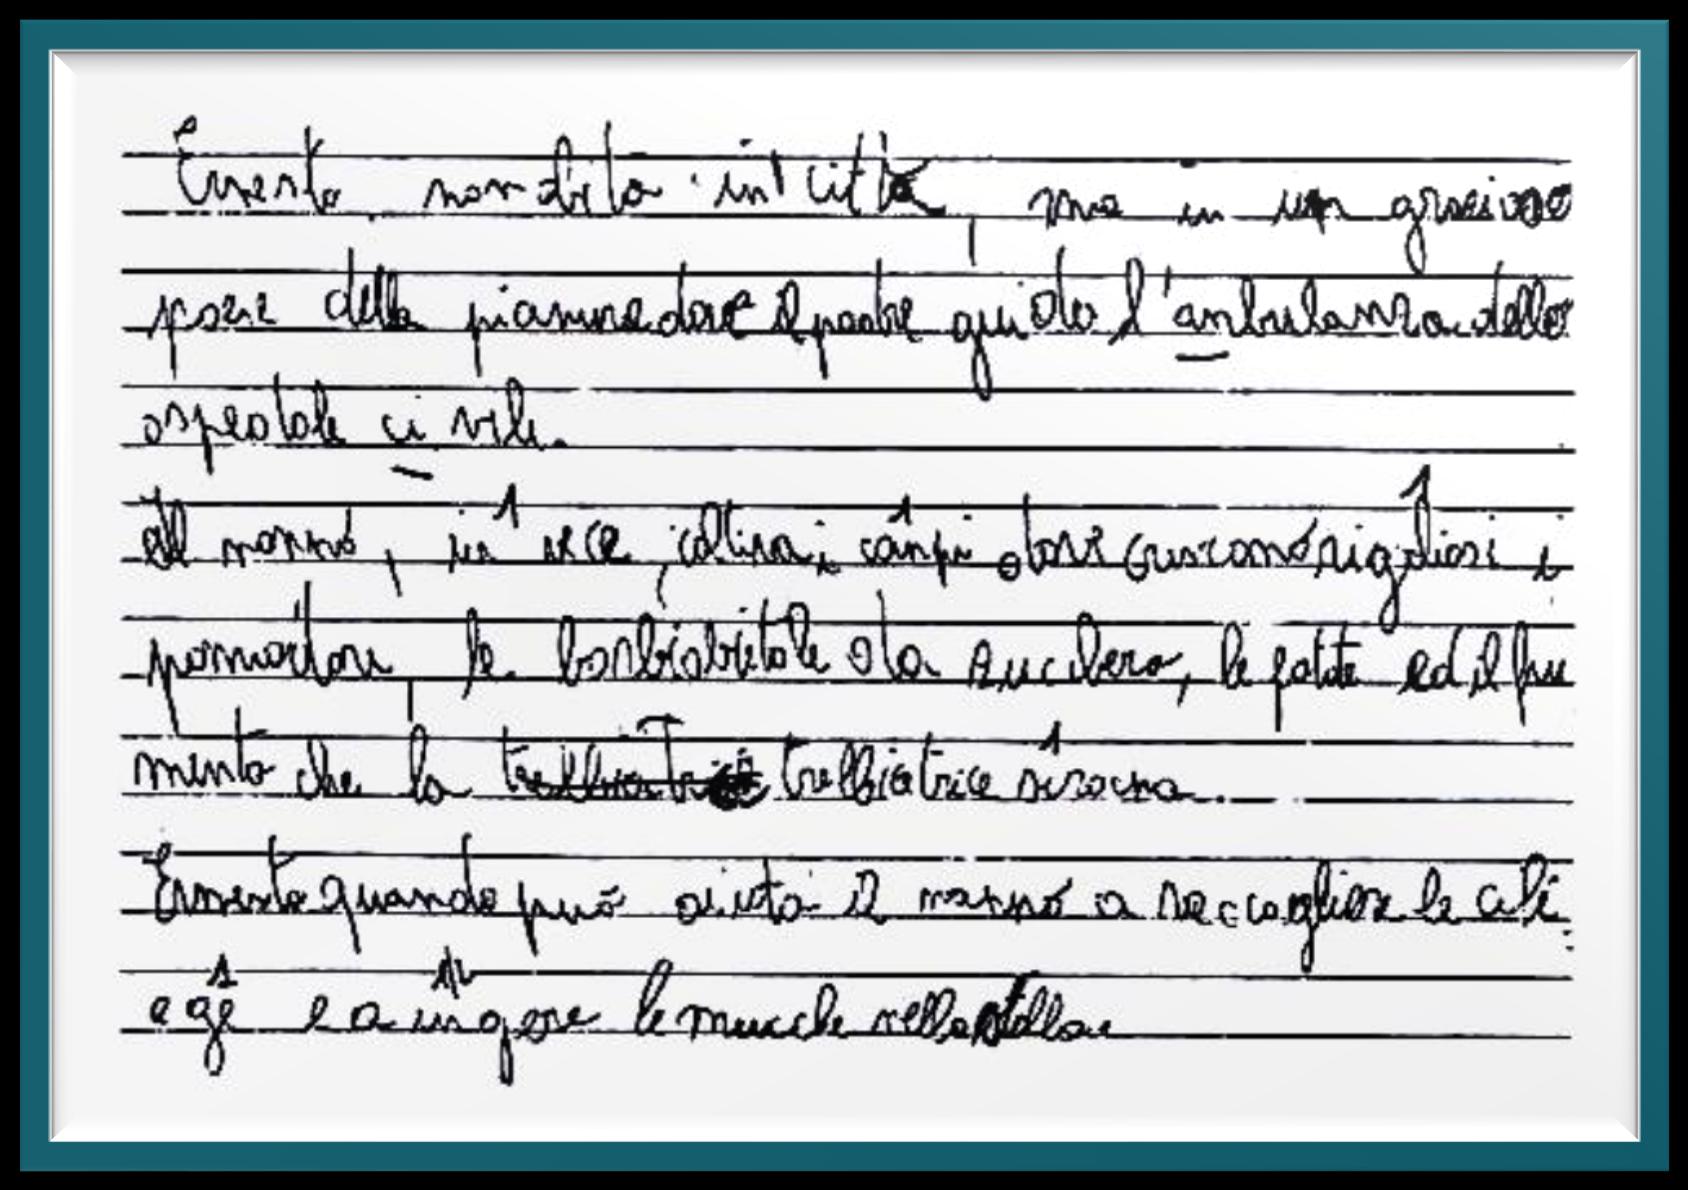 Ernesto non abita in città, ma in un grazioso
paese della pianura dove il padre guida l'anbulanza dello
ospedale ci vile.
Il nonno, in vece, coltiva i canpi dove crescono rigogliosi i
pomodori, le barbabietole da zucchero, le patate ed il fru
mento che la trebbiatrice
Ernesto quando può aiuta il nonno a raccogliere le cili
ege e a mugere le mucche nella stalla.